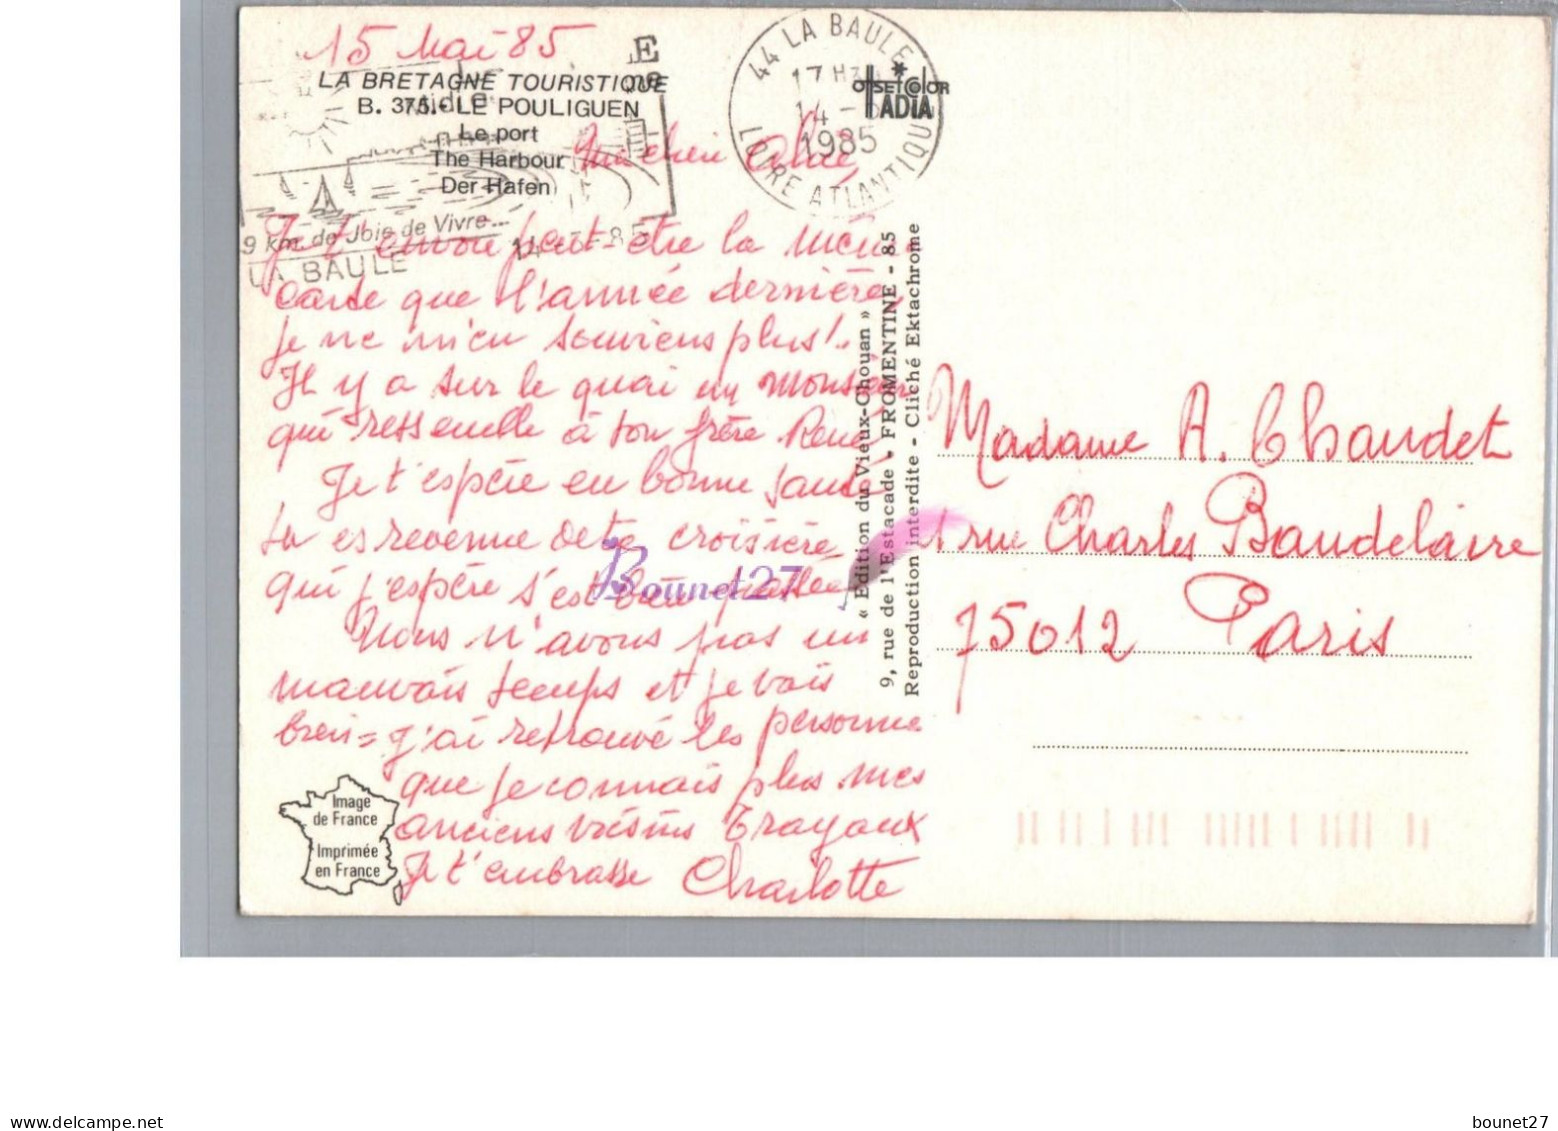 15 Mai 85
LA BRETAGNE TOURISTIQUE
B. 375.- LE POULIGUEN
Le port
The Harbour
Der Hafen
9 km de Joie de Vivre...
LA BAULE
44 LA BAULE
17 H
14 -
1985
LOIRE ATLANTIQUE
OFFSET COLOR
ADIA
Ma chère Alice
Je t'envoie peut-être la même
carte que l'année dernière,
je ne m'en souviens plus!..
Il y a sur le quai un monsieur
qui ressemble à ton frère René
Je t'espère en bonne santé
tu es revenue de ta croisière
qui j'espère s'est bien passée
Nous n'avons pas un
mauvais temps et je vais
bien = j'ai retrouvé les personne
que je connais plus mes
anciens voisins Trayaux
Je t'embrasse Charlotte
« Edition du Vieux-Chouan »
9, rue de l'Estacade - FROMENTINE - 85
Reproduction interdite - Cliché Ektachrome
Madame A. Chaudet
1 rue Charles Baudelaire
75012 Paris
Image
de France
Imprimée
en France
Bounet27
www.delcampe.net
bounet27